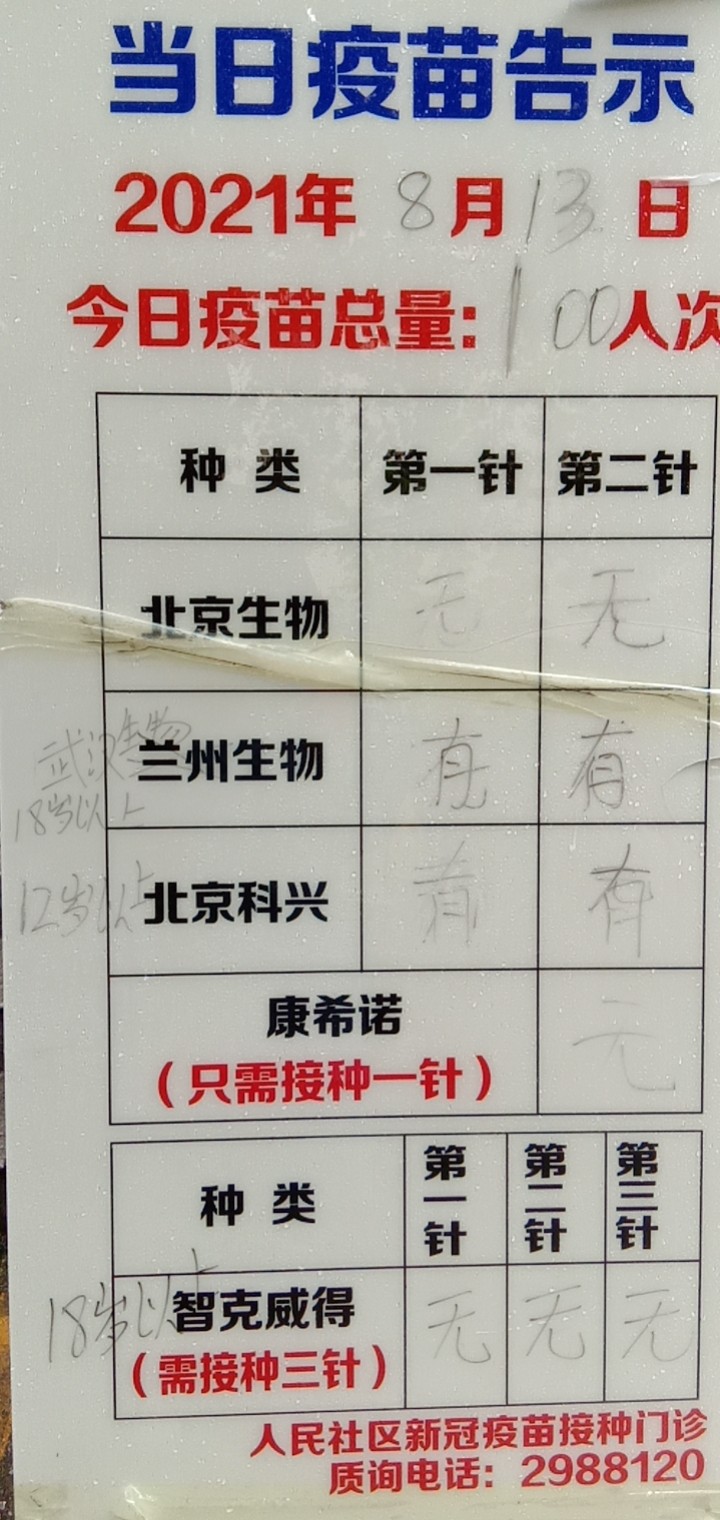 当日疫苗告示
2021年 8月13日
今日疫苗总量:100人次
种类 第一针 第二针
北京生物 无 无
武汉生物
兰州生物 有 有
18岁以上
12岁以上 北京科兴 有 有
康希诺 无
(只需接种一针)
种类 第一针 第二针 第三针
18岁以上 智克威得 无 无 无
(需接种三针)
人民社区新冠疫苗接种门诊
质询电话:2988120